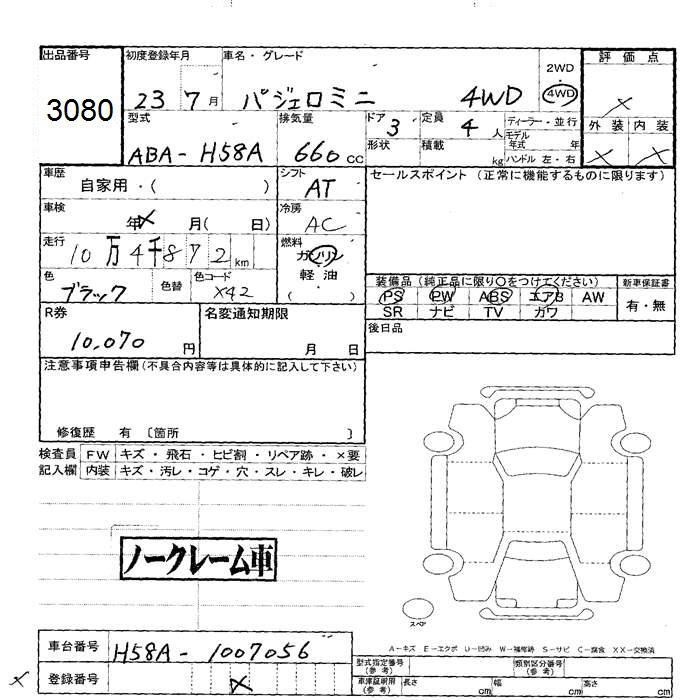 出品番号 初度登録年月 車名・グレード 2WD 評価点
3080 23 7月 パジェロミニ 4WD ・ 4WD ×
型式 排気量 ドア 3 定員 4人 ディーラー・並行 外装 内装
ABA-H58A 660cc 形状 積載 kg モデル年式 年 × ×
ハンドル 左・右
車歴 シフト セールスポイント (正常に機能するものに限ります)
自家用・( ) AT
車検 年× 月( 日) 冷房 AC
走行 10万4千872km 燃料 ガソリン
色 色替 色コード 軽油 装備品(純正品に限り○をつけてください) 新車保証書
ブラック X42 ( ) PS PW ABS エアB AW 有・無
SR ナビ TV カワ
R券 名変通知期限 後日品
10,070円 月 日
注意事項申告欄(不具合内容等は具体的に記入して下さい)
修復歴 有 〔箇所 〕
検査員 FW キズ・飛石・ヒビ割・リペア跡・×要
記入欄 内装 キズ・汚レ・コゲ・穴・スレ・キレ・破レ
ノークレーム車
スペア
車台番号 H58A-1007056
A-キズ E-エクボ U-凹み W-補修跡 S-サビ C-腐食 XX-交換済
型式指定番号(参考) 類別区分番号(参考)
× 登録番号 ×
車庫証明用(参考) 長さ cm 幅 cm 高さ cm